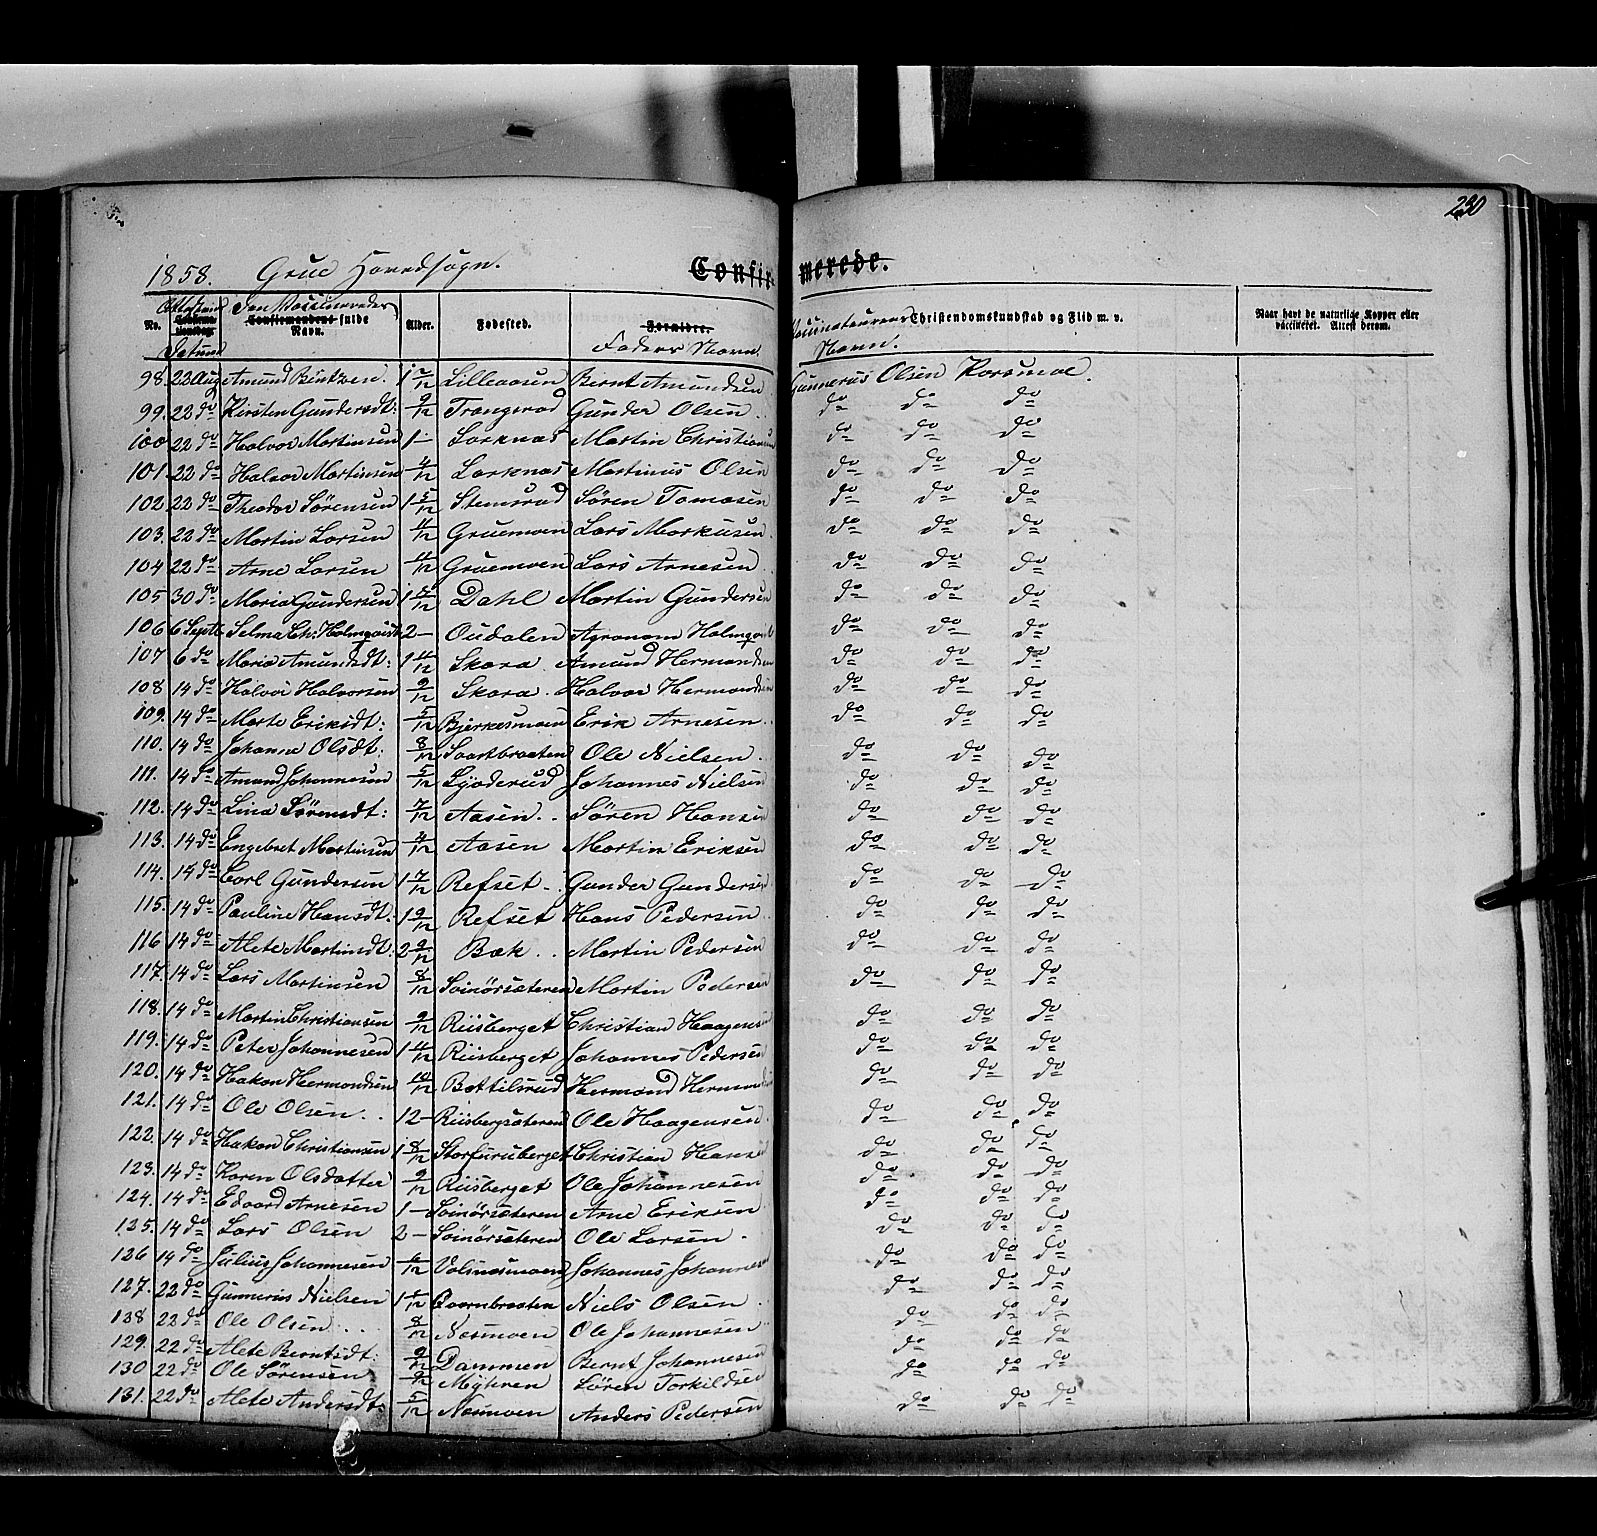 230
1858. Grue Hovedsogn.
Confirmerede.
No. Attestens Datum Den Vaccineredes fulde Navn. Alder. Fødested. Forældre. Faders Navn. Vaccinateurens Navn. Christendomskundskab og Flid m. v. Naar havt de naturlige Kopper eller vaccineret. Attest derom.
98. 22 Aug Amund Bentzen. 1 2/12 Lilleaasen Bernt Amundsen Gunnerus Olsen Korsmoe.
99. 22 do Kirsten Gundersdt: 9/12 Trangsrud Gunder Olsen do do do
100 22 do Halvor Martinsen 1- Lorknæs Martin Christiansen do do do
101. 22 do Halvor Martinsen 4/12 Lorknæs Martinus Olsen do do do
102. 22 do Theodor Sørensen 1 5/12 Stemsrud Søren Tomasen do do do
103. 22 do Martin Larsen 4/12 Gruemoen Lars Markusen do do do
104 22 do Arne Larsen 4/12 Gruemoen Lars Arnesen do do do
105 30 do Maria Gundersen 1 5/12 Dahl Martin Gundersen do do do
106 6 Septe Selma Ch: Holmqvist 2- Oudalen Agronom Holmqvist do do do
107 6 do Maria Amundsdt: 1 4/12 Skara. Amund Hermandsen do do do
108 14 do Halvor Halvorsen 9/12 Skara. Halvor Hermandsen do do do
109. 14 do Marte Eriksdt: 5/12 Bjerkesmoen Erik Arnesen. do do do
110. 14 do Johanne Olsdt: 8/12 Svartbraaten Ole Nielsen. do do do
111. 14 do Amund Johannesen 5/12 Lyøderud Johannes Nielsen do do do
112. 14 do Lina Sørensdt: 7/12 Aasen.. Søren Hansen do do do
113. 14 do Engebret Martinsen 4/12 Aasen Martin Eriksen do do do
114. 14 do Carl Gundersen 1 7/12 Refset-. Gunder Gundersen do do do
115. 14 do Pauline Hansdt: 1 9/12 Refset Hans Pedersen do do do
116 14 do Alete Martinsdt: 2 9/12 Bæk.. Martin Pedersen do do do
117. 14 do Lars Martinsen 8/12 Svinørsæteren Martin Pedersen do do do
118. 14 do Martin Christiansen 9/12 Riisberget Christian Haagensen do do do
119. 14 do Peter Johannesen 1 4/12 Riisberget Johannes Pedersen do do do
120. 14 do Hakon Hermandsen 10/12 Bottilsrud Hermand Hermandsen do do do
121. 14 do Ole Olsen.. 12- Riisbergsæteren Ole Haagensen do do do
122. 14 do Hakon Christiansen 1 8/12 Storfuruberget Christian Hansen do do do
123. 14 do Karen Olsdatter 9/12 Riisberget Ole Johannesen do do do
124. 14 do Edvard Arnesen 1- Svinørsæteren Arne Eriksen do do do
125. 14 do Lars Olsen 2- Svinørsæteren Ole Larsen. do do do
126 14 do Julius Johannesen 6/12 Volsnæsmoen Johannes Johannesen do do do
127. 22 do Gunnerius Nielsen 1 1/12 Qvarnbraaten Niels Olsen do do do
138 22 do Ole Olsen.. 8/12 Næsmoen Ole Johannesen do do do
129. 22 do Alete Berntsdt: 9/12 Dammen Bernt Johannesen do do do
130 22 do Ole Sørensen 9/12 Myhren Søren Torkildsen do do do
131. 22 do Alete Andersdt: 5/12 Næsmoen Anders Pedersen do do do